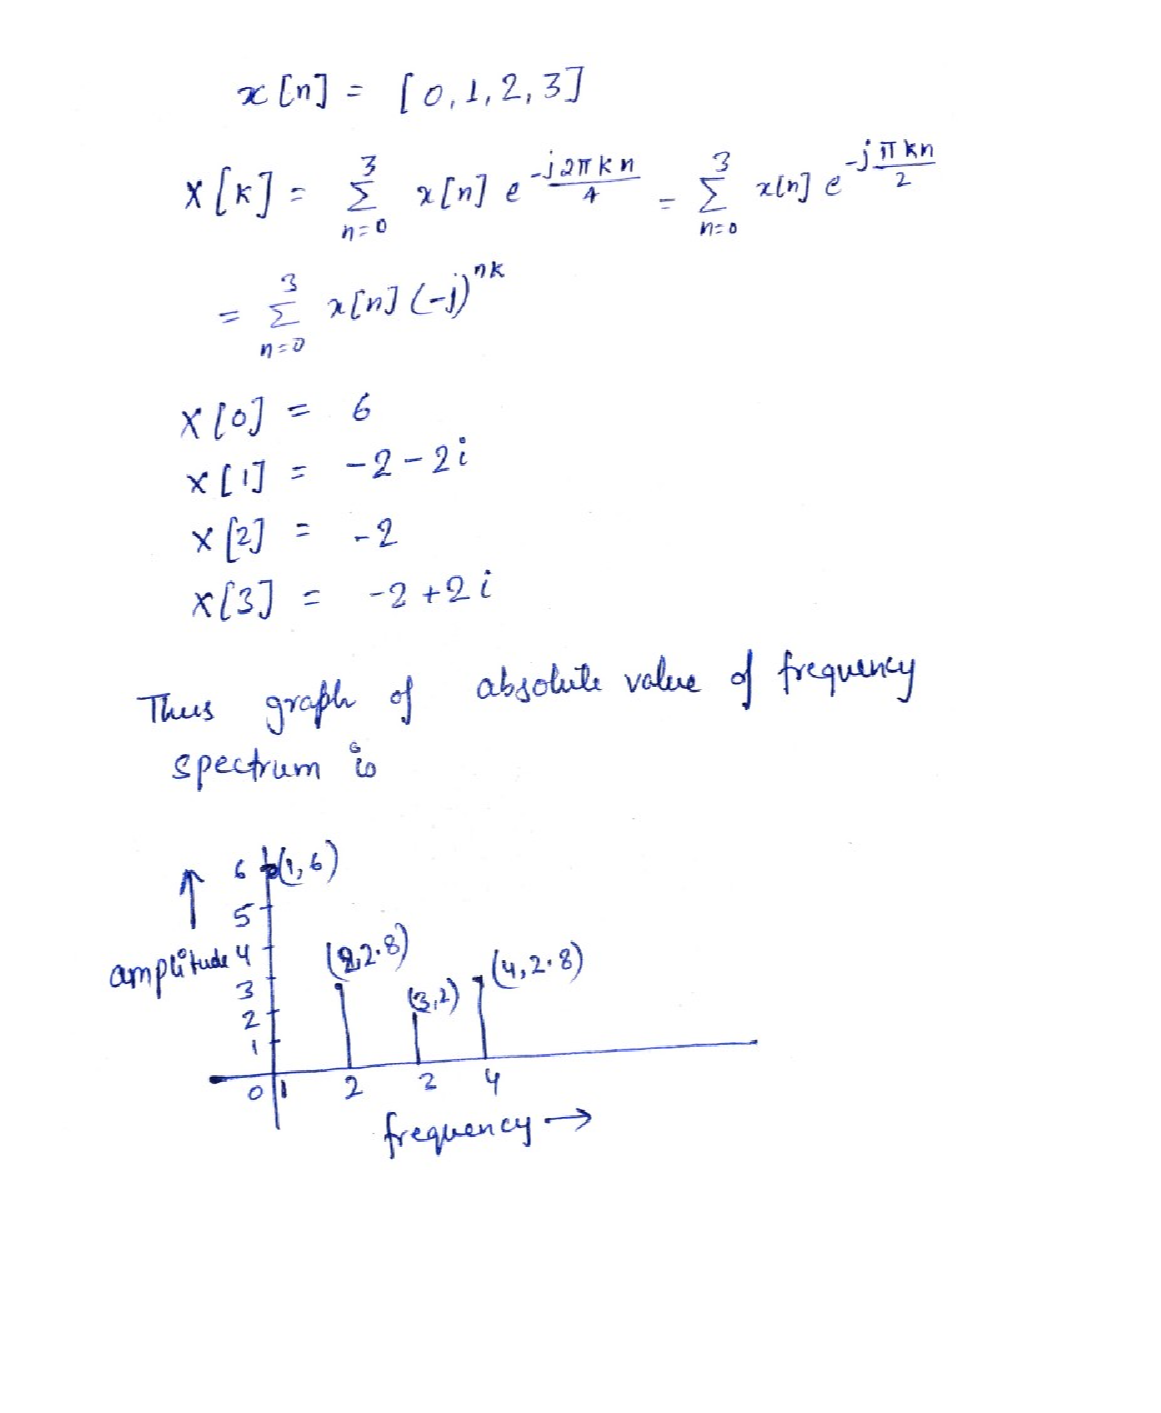 x[n] = [0,1,2,3]
X[k] = 3 Σ n=0 x[n] e^(-j2πkn/4) = 3 Σ n=0 x[n] e^(-jπkn/2)
= 3 Σ n=0 x[n] (-j)^nk
X[0] = 6
X[1] = -2-2i
X[2] = -2
X[3] = -2+2i
Thus graph of absolute value of frequency
spectrum is
6 (1,6)
5
amplitude 4 (2,2.8) (4,2.8)
3 (3,2)
2
1
0 1 2 2 4
frequency →